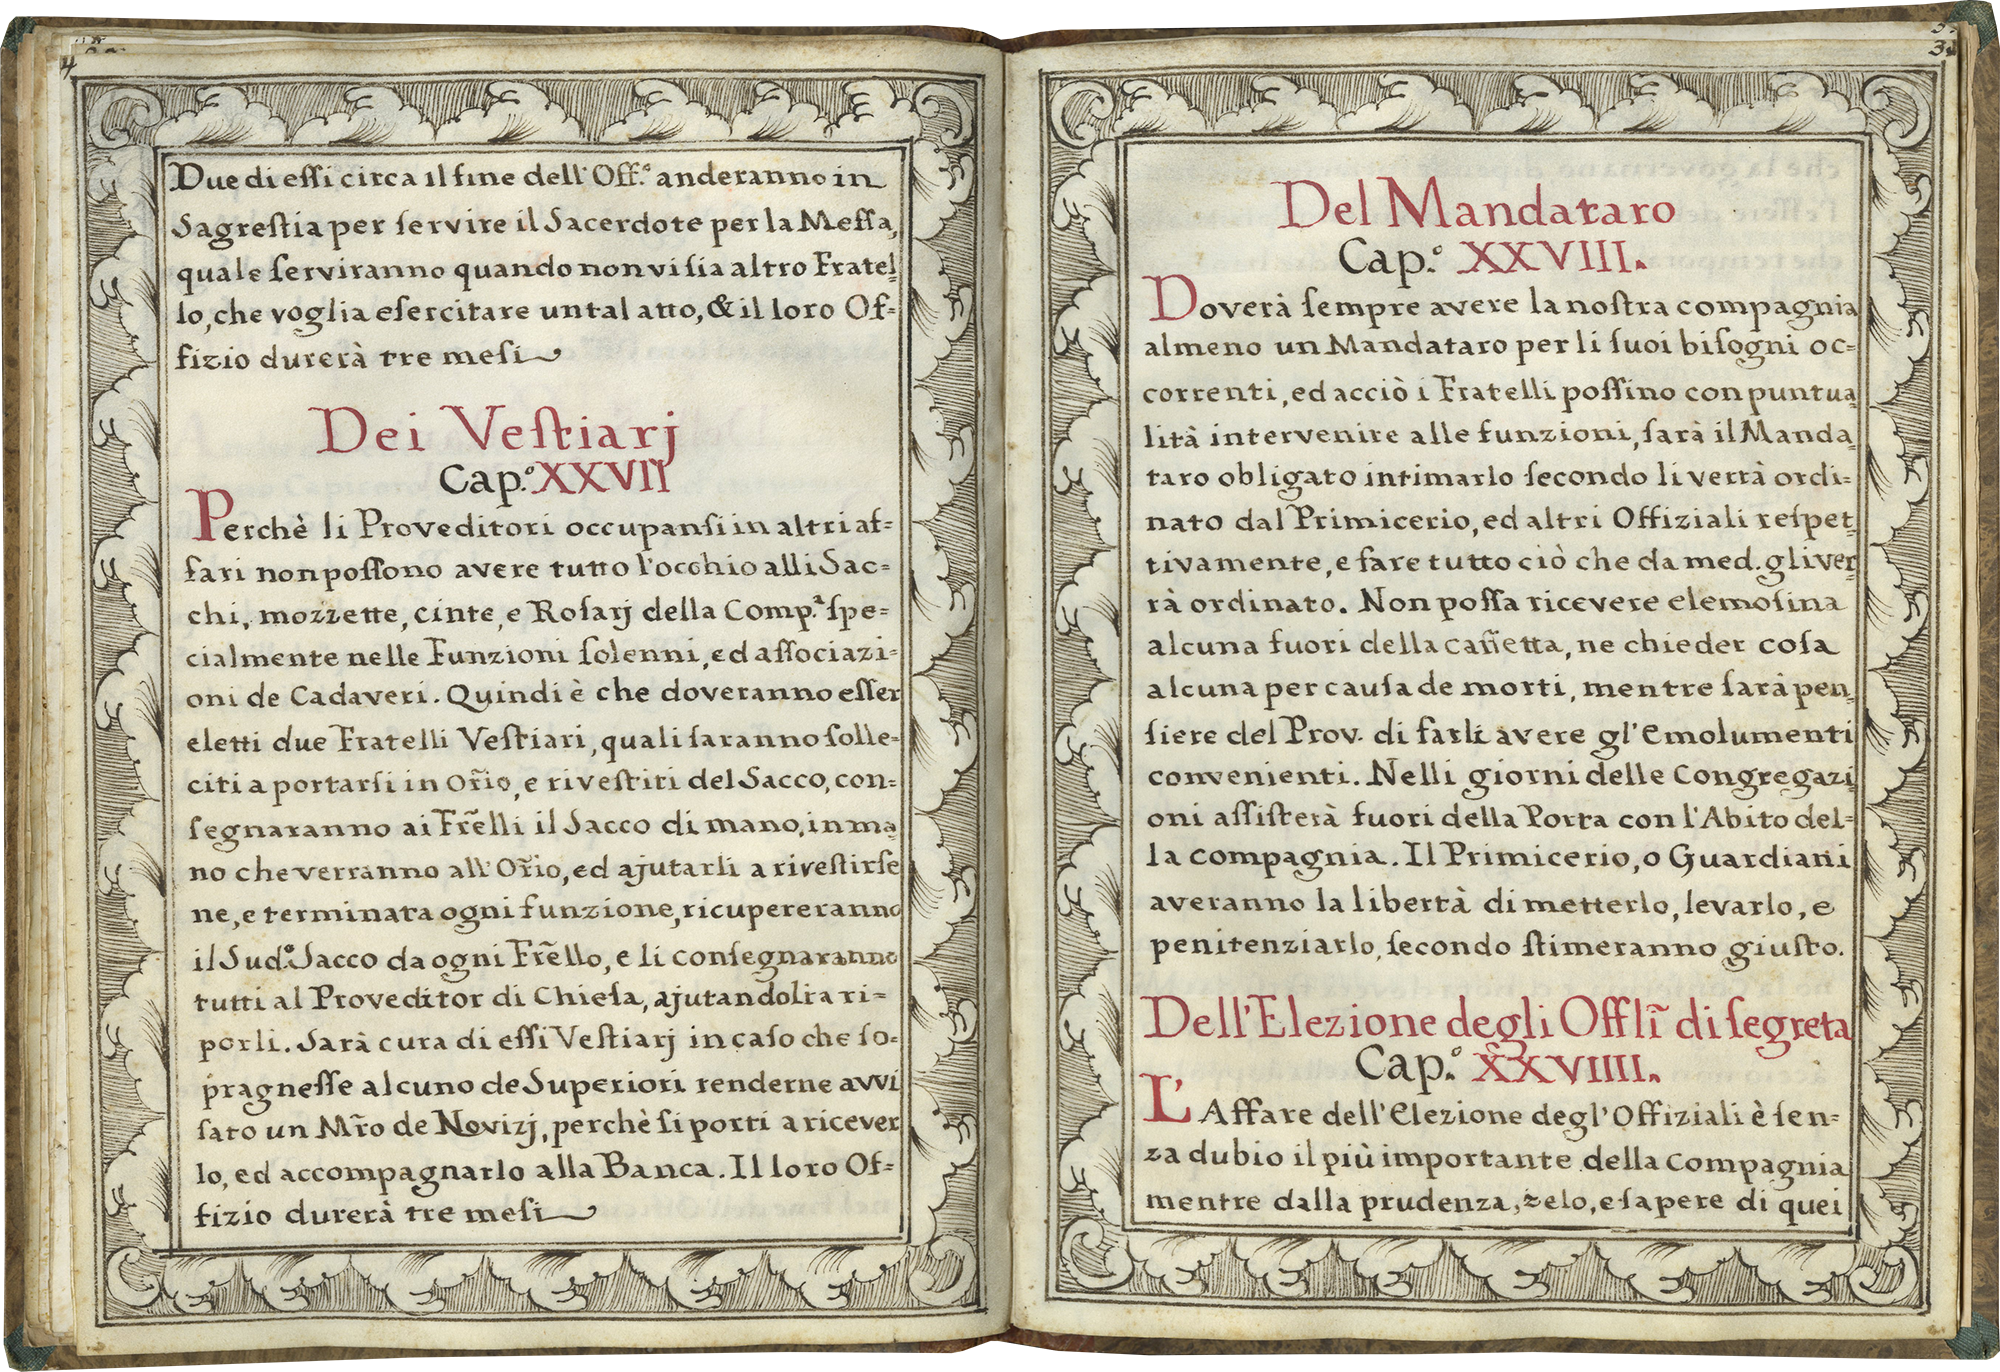 4
Due di eſſi circa il fine dell'Off.º anderanno in
Sagreſtia per ſervire il Sacerdote per la Meſſa,
quale ſerviranno quando non vi ſia altro Fratel-
lo, che voglia eſercitare un tal atto, & il loro Of=
fizio durerà tre meſi
Dei Veſtiarj
Cap.º XXVII
Perchè li Proveditori occupanſi in altri af=
fari non poſſono avere tutto l'occhio alli Sac=
chi, mozzette, cinte, e Roſarj della Comp.ª ſpe=
cialmente nelle Funzioni ſolenni, ed aſſociazi=
oni de Cadaveri. Quindi è che doveranno eſſer
eletti due Fratelli Veſtiari, quali ſaranno ſolle=
citi a portarſi in Or̃io, e riveſtiti del Sacco, con=
ſegnaranno ai Fr̃elli il Sacco di mano, in ma
no che verranno all'Or̃io, ed ajutarli a riveſtirſe
ne, e terminata ogni funzione, ricupereranno
il Sud.º Sacco da ogni Fr̃ello, e li conſegnaranno
tutti al Proveditor di Chieſa, ajutandoli a ri=
porli. Sarà cura di eſſi Veſtiarj in caſo che ſo=
pragneſſe alcuno de Superiori renderne avvi
ſato un Mr̃o de Novizj, perchè ſi porti a ricever
lo, ed accompagnarlo alla Banca. Il loro Of=
fizio durerà tre meſi
Del Mandataro
Cap.º XXVIII.
Doverà ſempre avere la noſtra compagnia
almeno un Mandataro per li ſuoi biſogni oc=
correnti, ed acciò i Fratelli poſſino con puntua-
lità intervenire alle funzioni, ſarà il Manda-
taro obligato intimarlo ſecondo li verrà ordi=
nato dal Primicerio, ed altri Offiziali reſpet-
tivamente, e fare tutto ciò che da med. gli ver-
rà ordinato. Non poſſa ricevere elemoſina
alcuna fuori della caſſetta, ne chieder coſa
alcuna per cauſa de morti, mentre ſarà pen-
ſiere del Prov. di farli avere gl'Emolumenti
convenienti. Nelli giorni delle Congregazi
oni aſſiſterà fuori della Porta con l'Abito del=
la compagnia. Il Primicerio, o Guardiani
averanno la libertà di metterlo, levarlo, e
penitenziarlo, ſecondo ſtimeranno giuſto.
Dell'Elezione degli Offlĩ di ſegreta
Cap.º XXVIIII.
L'Affare dell'Elezione degl'Offiziali è ſen=
za dubio il più importante della Compagnia
mentre dalla prudenza, zelo, e ſapere di quei